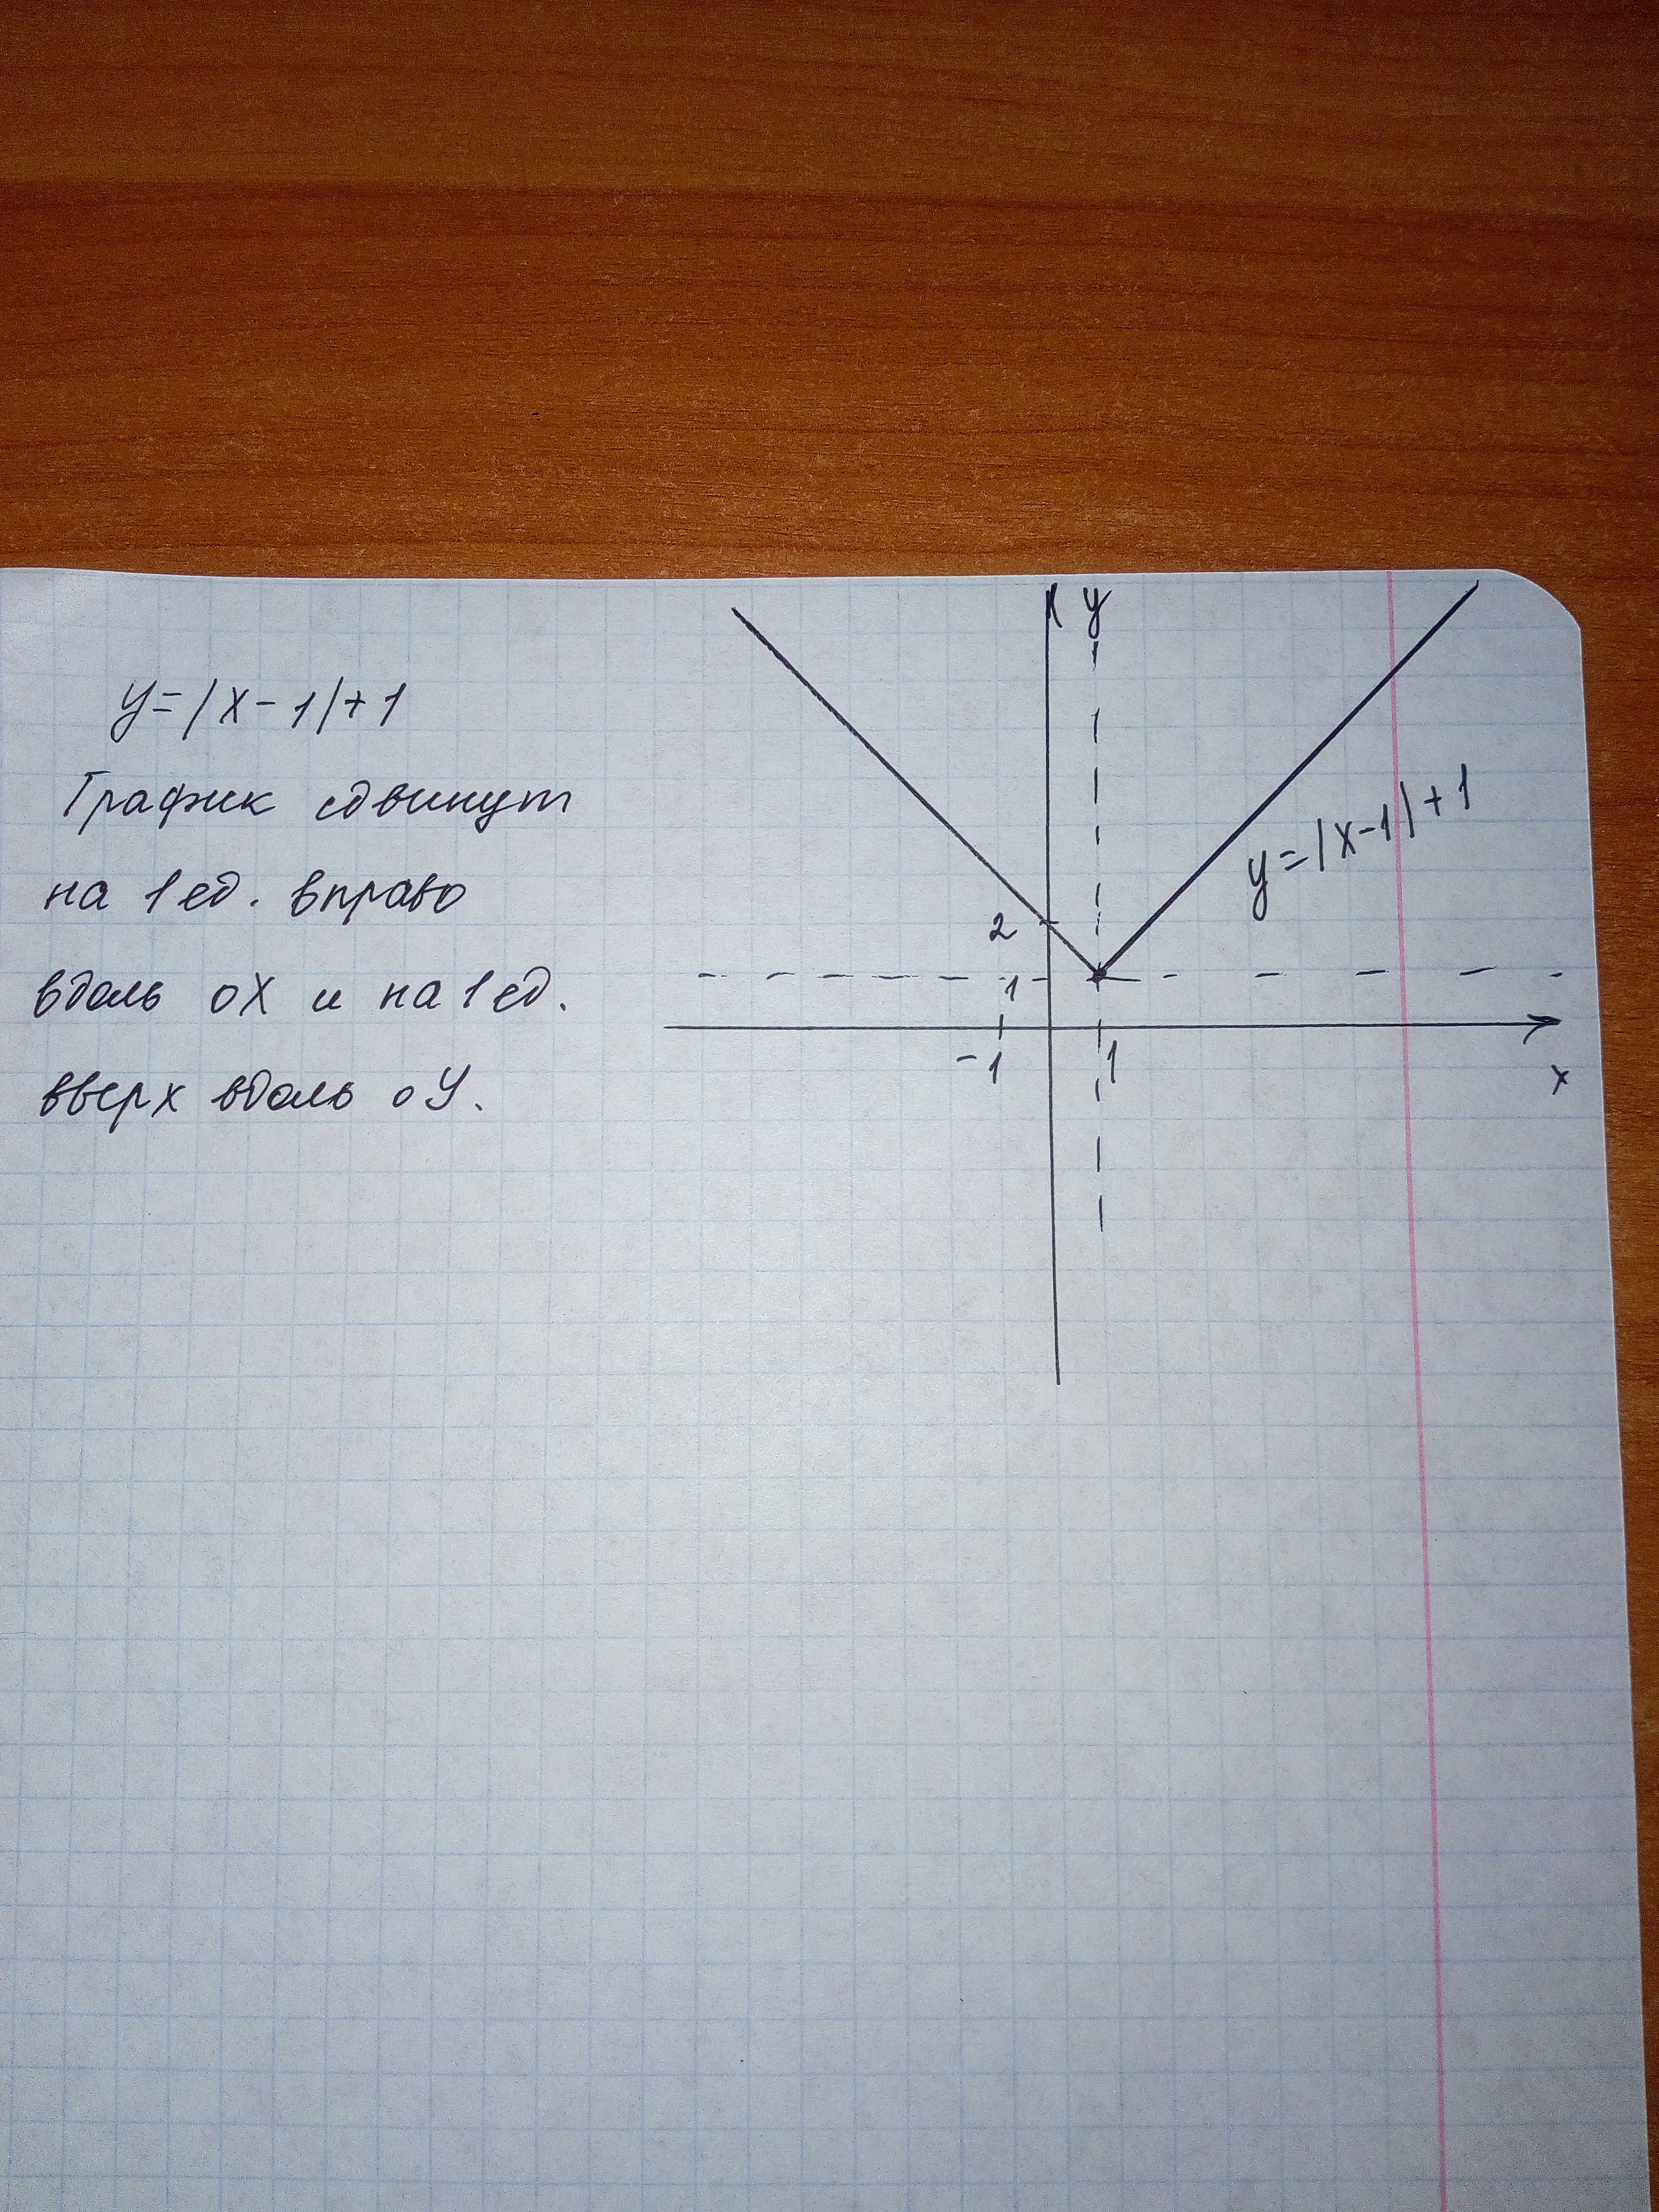 y=|x-1|+1
График сдвинут
на 1 ед. вправо
вдоль oX и на 1 ед.
вверх вдоль oY.
y
y=|x-1|+1
2
1
-1
1
x